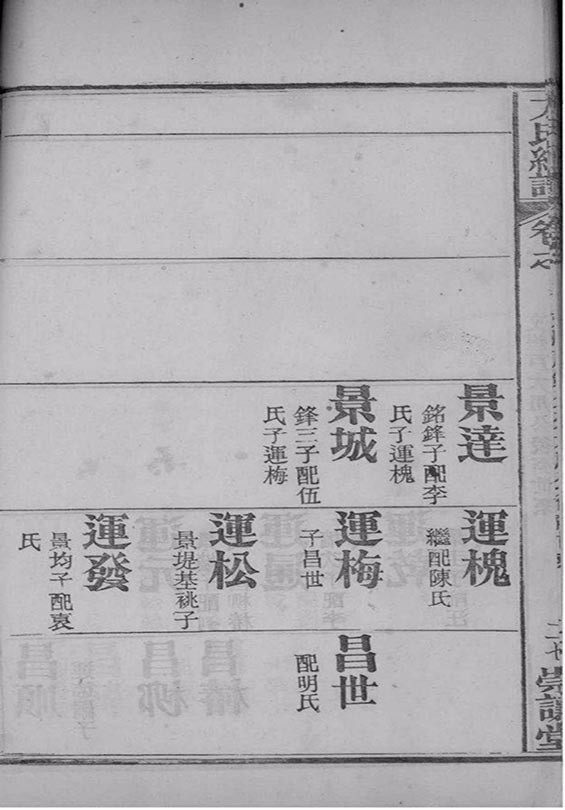 氏續譜
卷七
崇讓堂
景達
銘鋒子配李
氏子運槐
景城
鋒三子配伍
氏子運梅
運槐
繼配陳氏
運梅
子昌世
運松
景堤基祧子
運發
景均子配袁
氏
昌世
配明氏